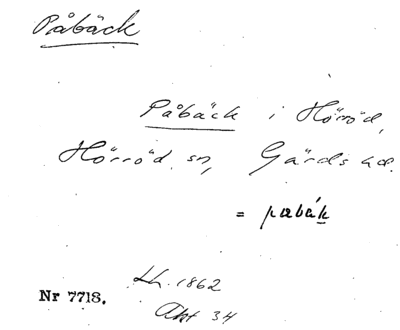 Påbäck
Påbäck i Hörröd,
Hörröd sn, Gärds hd.
= pabák
Lh. 1862
Nr 7718.
Akt 34